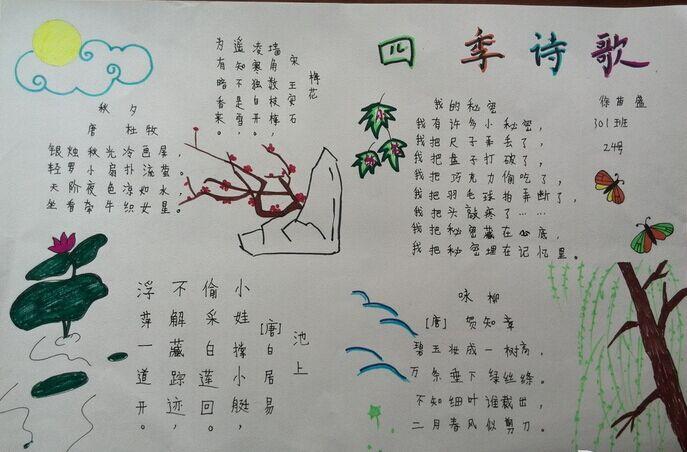 四季诗歌
秋夕
唐 杜牧
银烛秋光冷画屏，
轻罗小扇扑流萤。
天阶夜色凉如水，
坐看牵牛织女星。
梅花
宋 王安石
墙角数枝梅，
凌寒独自开。
遥知不是雪，
为有暗香来。
我的秘密
我有许多小秘密，
我把尺子弄丢了，
我把盘子打破了，
我把巧克力偷吃了，
我把羽毛球拍弄断了，
我把头敲疼了……
我把秘密藏在心底，
我把秘密埋在记忆里。
301班
24号
池上
[唐]白居易
小娃撑小艇，
偷采白莲回。
不解藏踪迹，
浮萍一道开。
咏柳
[唐] 贺知章
碧玉妆成一树高，
万条垂下绿丝绦。
不知细叶谁裁出，
二月春风似剪刀。